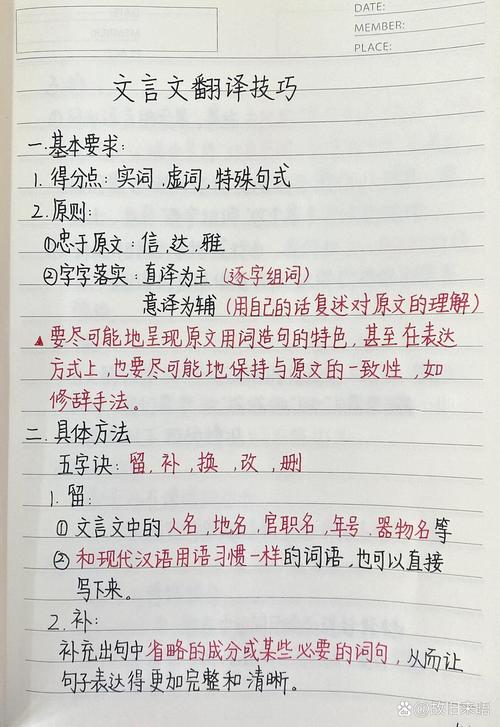 DATE:
MEMBER:
PLACE:
文言文翻译技巧
一.基本要求:
1. 得分点: 实词,虚词,特殊句式
2.原则:
①忠于原文: 信,达,雅
②字字落实: 直译为主 (逐字组词)
意译为辅 (用自己的话复述对原文的理解)
▲要尽可能地呈现原文用词造句的特色,甚至在表达
方式上,也要尽可能地保持与原文的一致性,如
修辞手法。
二.具体方法
五字诀: 留,补,换,改,删
1.留:
①文言文中的人名,地名,官职名,年号.器物名等
②和现代汉语用语习惯一样的词语,也可以直接
写下来。
2.补:
补充出句中省略的成分或某些必要的词句,从而让
句子表达得更加完整和清晰。